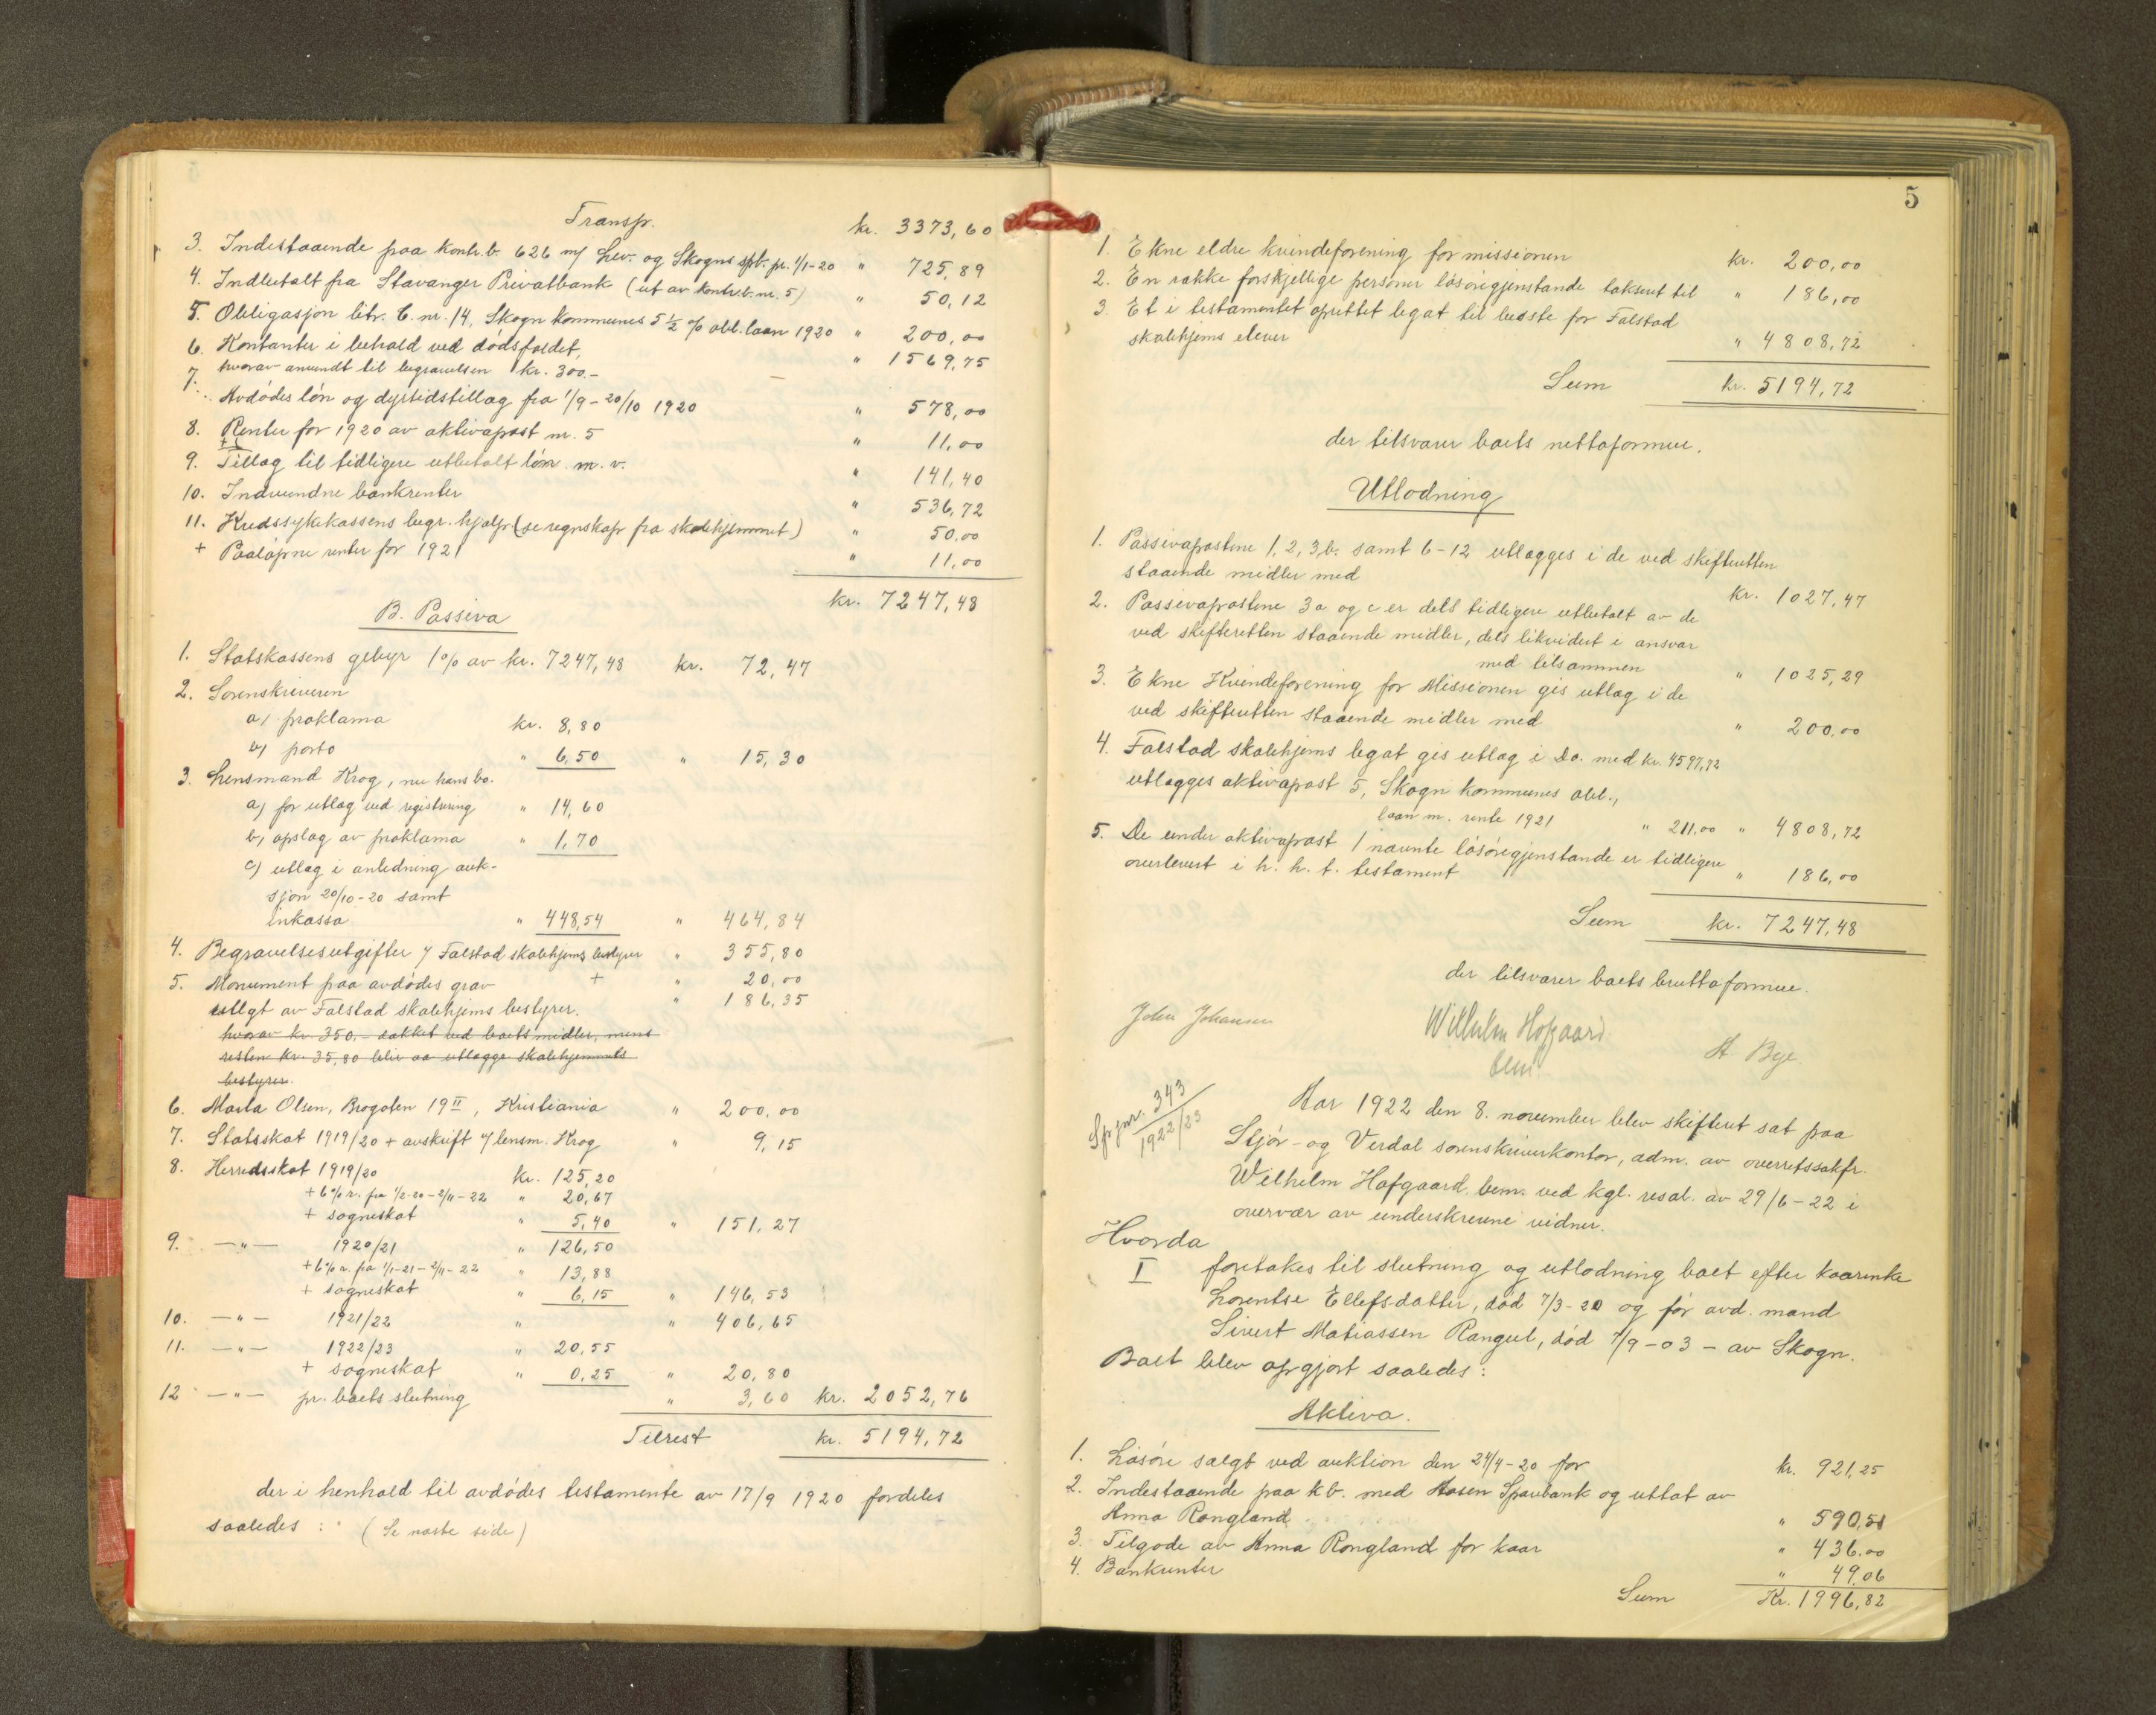 Transp. kr. 3373,60
3. Indestaaende paa kontr.b. 626 m/ Lev. og Skogns spb. pr. 1/1-20 " 725,89
4. Indbetalt fra Stavanger Privatbank (ut av kontr.b. nr. 5) " 50,12
5. Obligasjon litr. C. nr. 14, Skogn kommunes 5 1/2 % obl. laan 1920 " 200,00
6. Kontanter i behold ved dødsfaldet, " 1569,75
hvorav anvendt til begravelsen kr. 300.-
7. Avdødes løn og dyrtidstillæg fra 1/9-20/10 1920 " 578,00
8. Renter for 1920 av aktivapost nr. 5 " 11,00
9. Tillæg til tidligere utbetalt løn m. v. " 141,40
10. Indvundne bankrenter " 536,72
11. Kredssykekassens begr. hjælp (se regnskap fra skolehjemmet) " 50,00
+ Paaløpne renter for 1921 " 11,00
kr. 7247,48
B. Passiva
1. Statskassens gebyr 1% av kr. 7247,48 kr. 72,47
2. Sorenskriveren
a) proklama kr. 8,80
b) porto " 6,50 " 15,30
3. Lensmand Krog, nu hans bo.
a) for utlæg ved registrering " 14,60
b) opslag av proklama " 1,70
c) utlæg i anledning auk-
sjon 20/10-20 samt
inkasso " 448,54 " 464,84
4. Begravelsesutgifter v/ Falstad skolehjems bestyrer " 355,80
+ " 20,00
5. Monument paa avdødes grav " 186,35
utlgt av Falstad skolehjems bestyrer.
hvorav kr. 350,- dækket ved boets midler, mens
resten kr. 35,80 blev aa utlægge skolehjemmets
bestyrer.
6. Marta Olsen, Brogaten 19 II, Kristiania " 200,00
7. Statsskat 1919/20 + avskrift v/ lensm. Krog " 9,15
8. Herredsskat 1919/20 kr. 125,20
+ 6% r. fra 1/2-20-2/11-22 " 20,67
+ sogneskat " 5,40 " 151,27
9. -"- 1920/21 " 126,50
+ 6% r. fra 1/1-21-2/11-22 " 13,88
+ sogneskat " 6,15 " 146,53
10. -"- 1921/22 " " 406,65
11. -"- 1922/23 " 20,55
+ sogneskat " 0,25 " 20,80
12 -"- pr. boets slutning " 3,60 kr. 2052,76
Tilrest kr. 5194,72
der i henhold til avdødes testamente av 17/9 1920 fordeles
saaledes : (Se næste side)
5
1. Ekne eldre kvindeforening for missionen kr. 200,00
2. En række forskjellige personer løsøregjenstande taksert til " 186,00
3. Et i testamentet oprettet legat til bedste for Falstad
skolehjems elever " 4808,72
Sum kr. 5194,72
der tilsvarer boets nettoformue.
Utlodning
1. Passivapostene 1, 2, 3,b. samt 6-12 utlægges i de ved skifteretten
staaende midler med kr. 1027,47
2. Passivapostene 3a og c er dels tidligere utbetalt av de
ved skifteretten staaende midler, dels likvidert i ansvar
med tilsammen " 1025,29
3. Ekne Kvindeforening for Missionen gis utlæg i de
ved skifteretten staaende midler med " 200,00
4. Falstad skolehjems legat gis utlæg i Do. med kr. 4597,72
utlægges aktivapost 5, Skogn kommunes obl.,
laan m. rente 1921 " 211,00 " 4808,72
5. De under aktivapost 1 nævnte løsøregjenstande er tidligere
overlevert i h. h. t. testament " 186,00
Sum kr. 7247,48
der tilsvarer boets bruttoformue.
John Johansen Wilhelm Hofgaard A Bye
bem
Spjnr. 343
1922/23
Aar 1922 den 8. november blev skifteret sat paa
Stjør- og Verdal sorenskriverkontor, adm. av overretssakfr.
Wilhelm Hofgaard, bem. ved kgl. resol. av 29/6-22 i
overvær av underskrevne vidner.
Hvorda
I foretokes til slutning og utlodning boet efter kaarenke
Lorentse Ellefsdatter, død 7/3-20 og før avd. mand
Sivert Matiassen Rangul, død 7/9-03 - av Skogn.
Boet blev opgjort saaledes:
Aktiva.
1. Løsøre solgt ved auktion den 24/4-20 for kr. 921,25
2. Indestaaende paa kb. med Aasen Sparebank og uttat av
Anna Rongland " 590,51
3. Tilgode av Anna Rongland for kaar " 436.00
4. Bankrenter " 49,06
Sum Kr. 1996,82